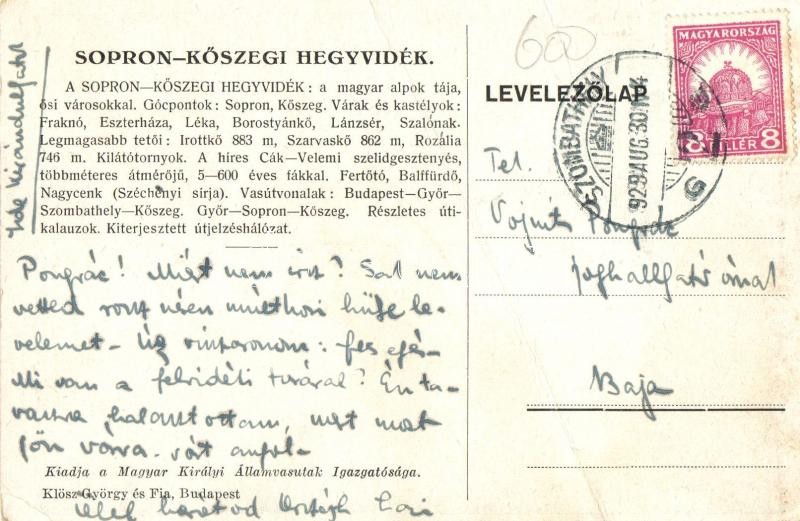 SOPRON—KŐSZEGI HEGYVIDÉK.
A SOPRON—KŐSZEGI HEGYVIDÉK: a magyar alpok tája,
ősi városokkal. Gócpontok: Sopron, Kőszeg. Várak és kastélyok:
Fraknó, Eszterháza, Léka, Borostyánkő, Lánzsér, Szalónak.
Legmagasabb tetői: Irottkő 883 m, Szarvaskő 862 m, Rozália
746 m. Kilátótornyok. A híres Cák—Velemi szelidgesztenyés,
többméteres átmérőjű, 5—600 éves fákkal. Fertőtó, Balffürdő,
Nagycenk (Széchenyi sírja). Vasútvonalak: Budapest—Győr—
Szombathely—Kőszeg. Győr—Sopron—Kőszeg. Részletes úti-
kalauzok. Kiterjesztett útjelzéshálózat.
Ide kirándulgatok
Pongrác! Miért nem írsz?
vetted rossz néven múltkori hülye le-
velemet -
Mi van a felvidéki túrával? Én ta-
vaszra halasztottam, mert most
jön
Kiadja a Magyar Királyi Államvasutak Igazgatósága.
Klösz György és Fia, Budapest
ölel barátod
600
LEVELEZŐLAP
MAGYARORSZÁG
8 FILLÉR 8
SZOMBATHELY
929 AUG 30
Tek.
Vojnits Pongrác
joghallgató úrnak
Baja